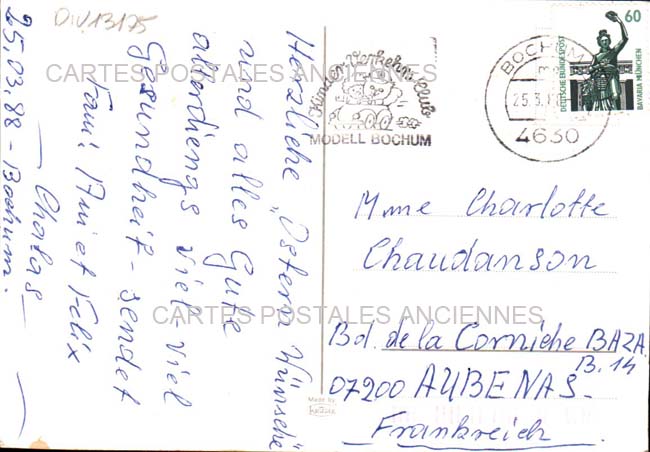 D.V 13175
Herzliche „Ostern Wünsche
und alles Gute
allerdiengs viel-viel
Gesundheit - sendet
Fami et Felix
— Chalas —
25.03.88 - Bochum.
Kinder-Verkehrs-Club
MODELL BOCHUM
BOCHUM
25.3.
4630
60
DEUTSCHE BUNDESPOST
BAVARIA MÜNCHEN
Mme Charlotte
Chaudanson
Bd. de la Corniche BAZA
B. 14
07200 AUBENAS-
Frankreich.
Made by
CARTES POSTALES ANCIENNES
CARTES POSTALES ANCIENNES